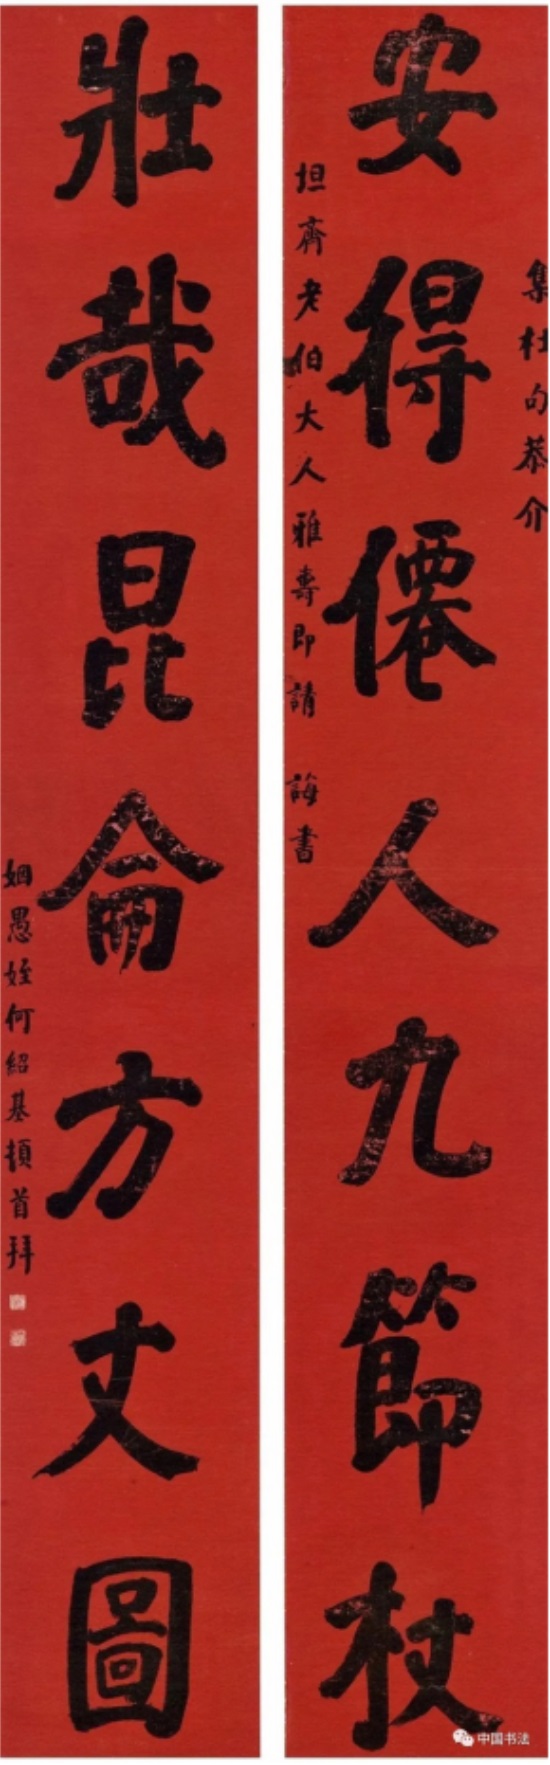 集杜句恭介
安得僊人九節杖
坦齋老伯大人雅壽即請 誨書
壯哉昆侖方丈圖
姻愚姪何紹基頓首拜
中国书法